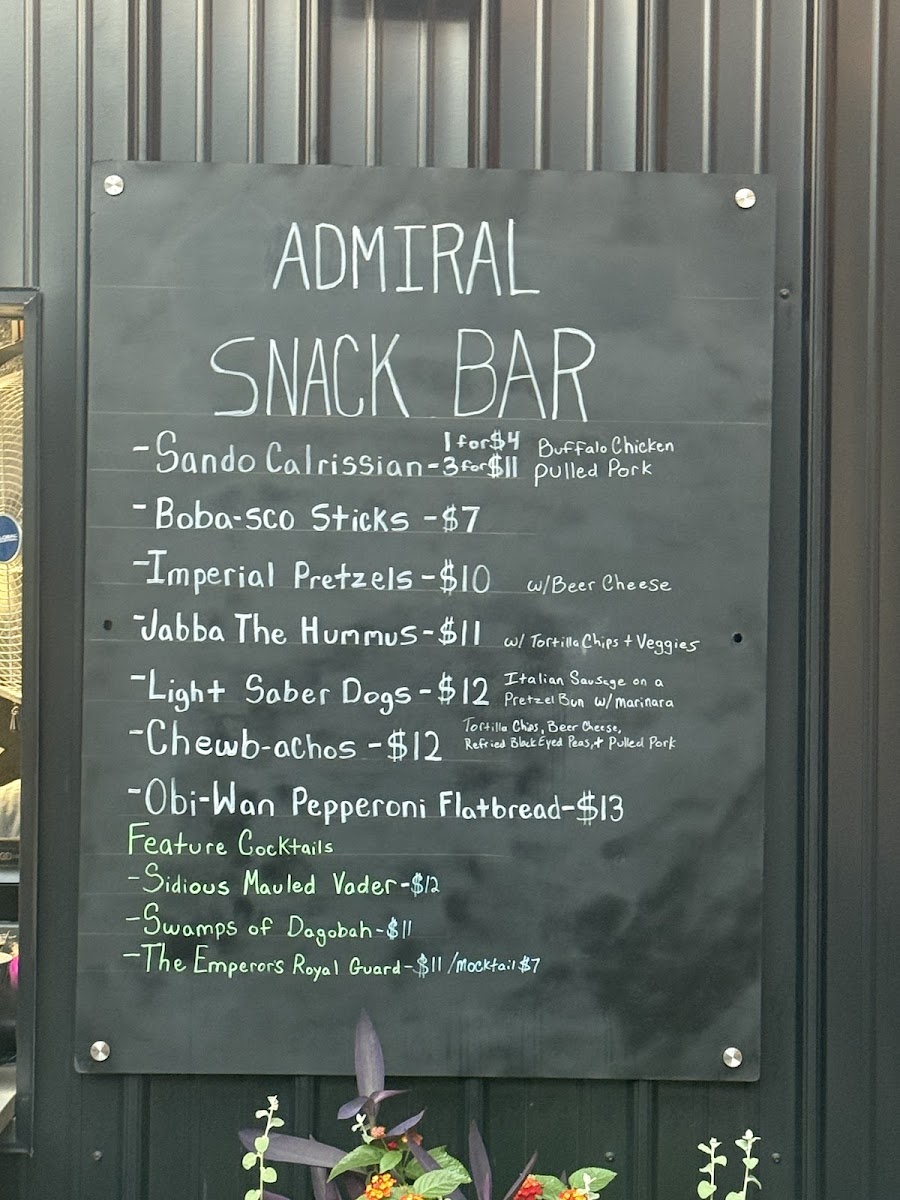 ADMIRAL
SNACK BAR
-Sando Calrissian- 1 for $4 Buffalo Chicken
3 for $11 pulled Pork
-Boba-sco Sticks -$7
-Imperial Pretzels -$10 w/Beer Cheese
-Jabba The Hummus-$11 w/ Tortilla Chips + Veggies
-Light Saber Dogs -$12 Italian Sausage on a
Pretzel Bun w/marinara
-Chewb-achos -$12 Tortilla Chips, Beer Cheese,
Refried Black Eyed Peas, + Pulled Pork
-Obi-Wan Pepperoni Flatbread-$13
Feature Cocktails
-Sidious Mauled Vader-$12
-Swamps of Dagobah-$11
-The Emperor's Royal Guard-$11/Mocktail $7